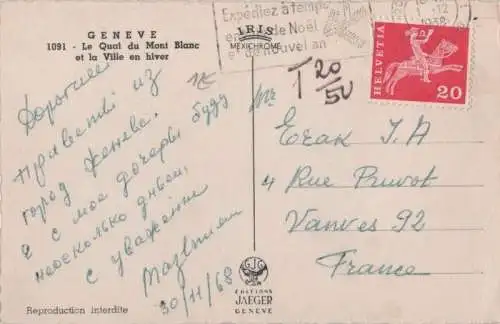 GENEVE
1091 - Le Quai du Mont Blanc
et la Ville en hiver
IRIS
MEXICHROME
Expédiez à temps
de Noël
et de nouvel an
1.12
1968
HELVETIA
20
T 20/50
1E
Дорогие
Приветы из
город Женева.
Я с мое дочеры буду
несколько дньей,
с уважение
30/11/68
Mr
Erak J.A
4 Rue Pruvot
Vanves 92
France
EDITIONS
JAEGER
GENEVE
Reproduction interdite